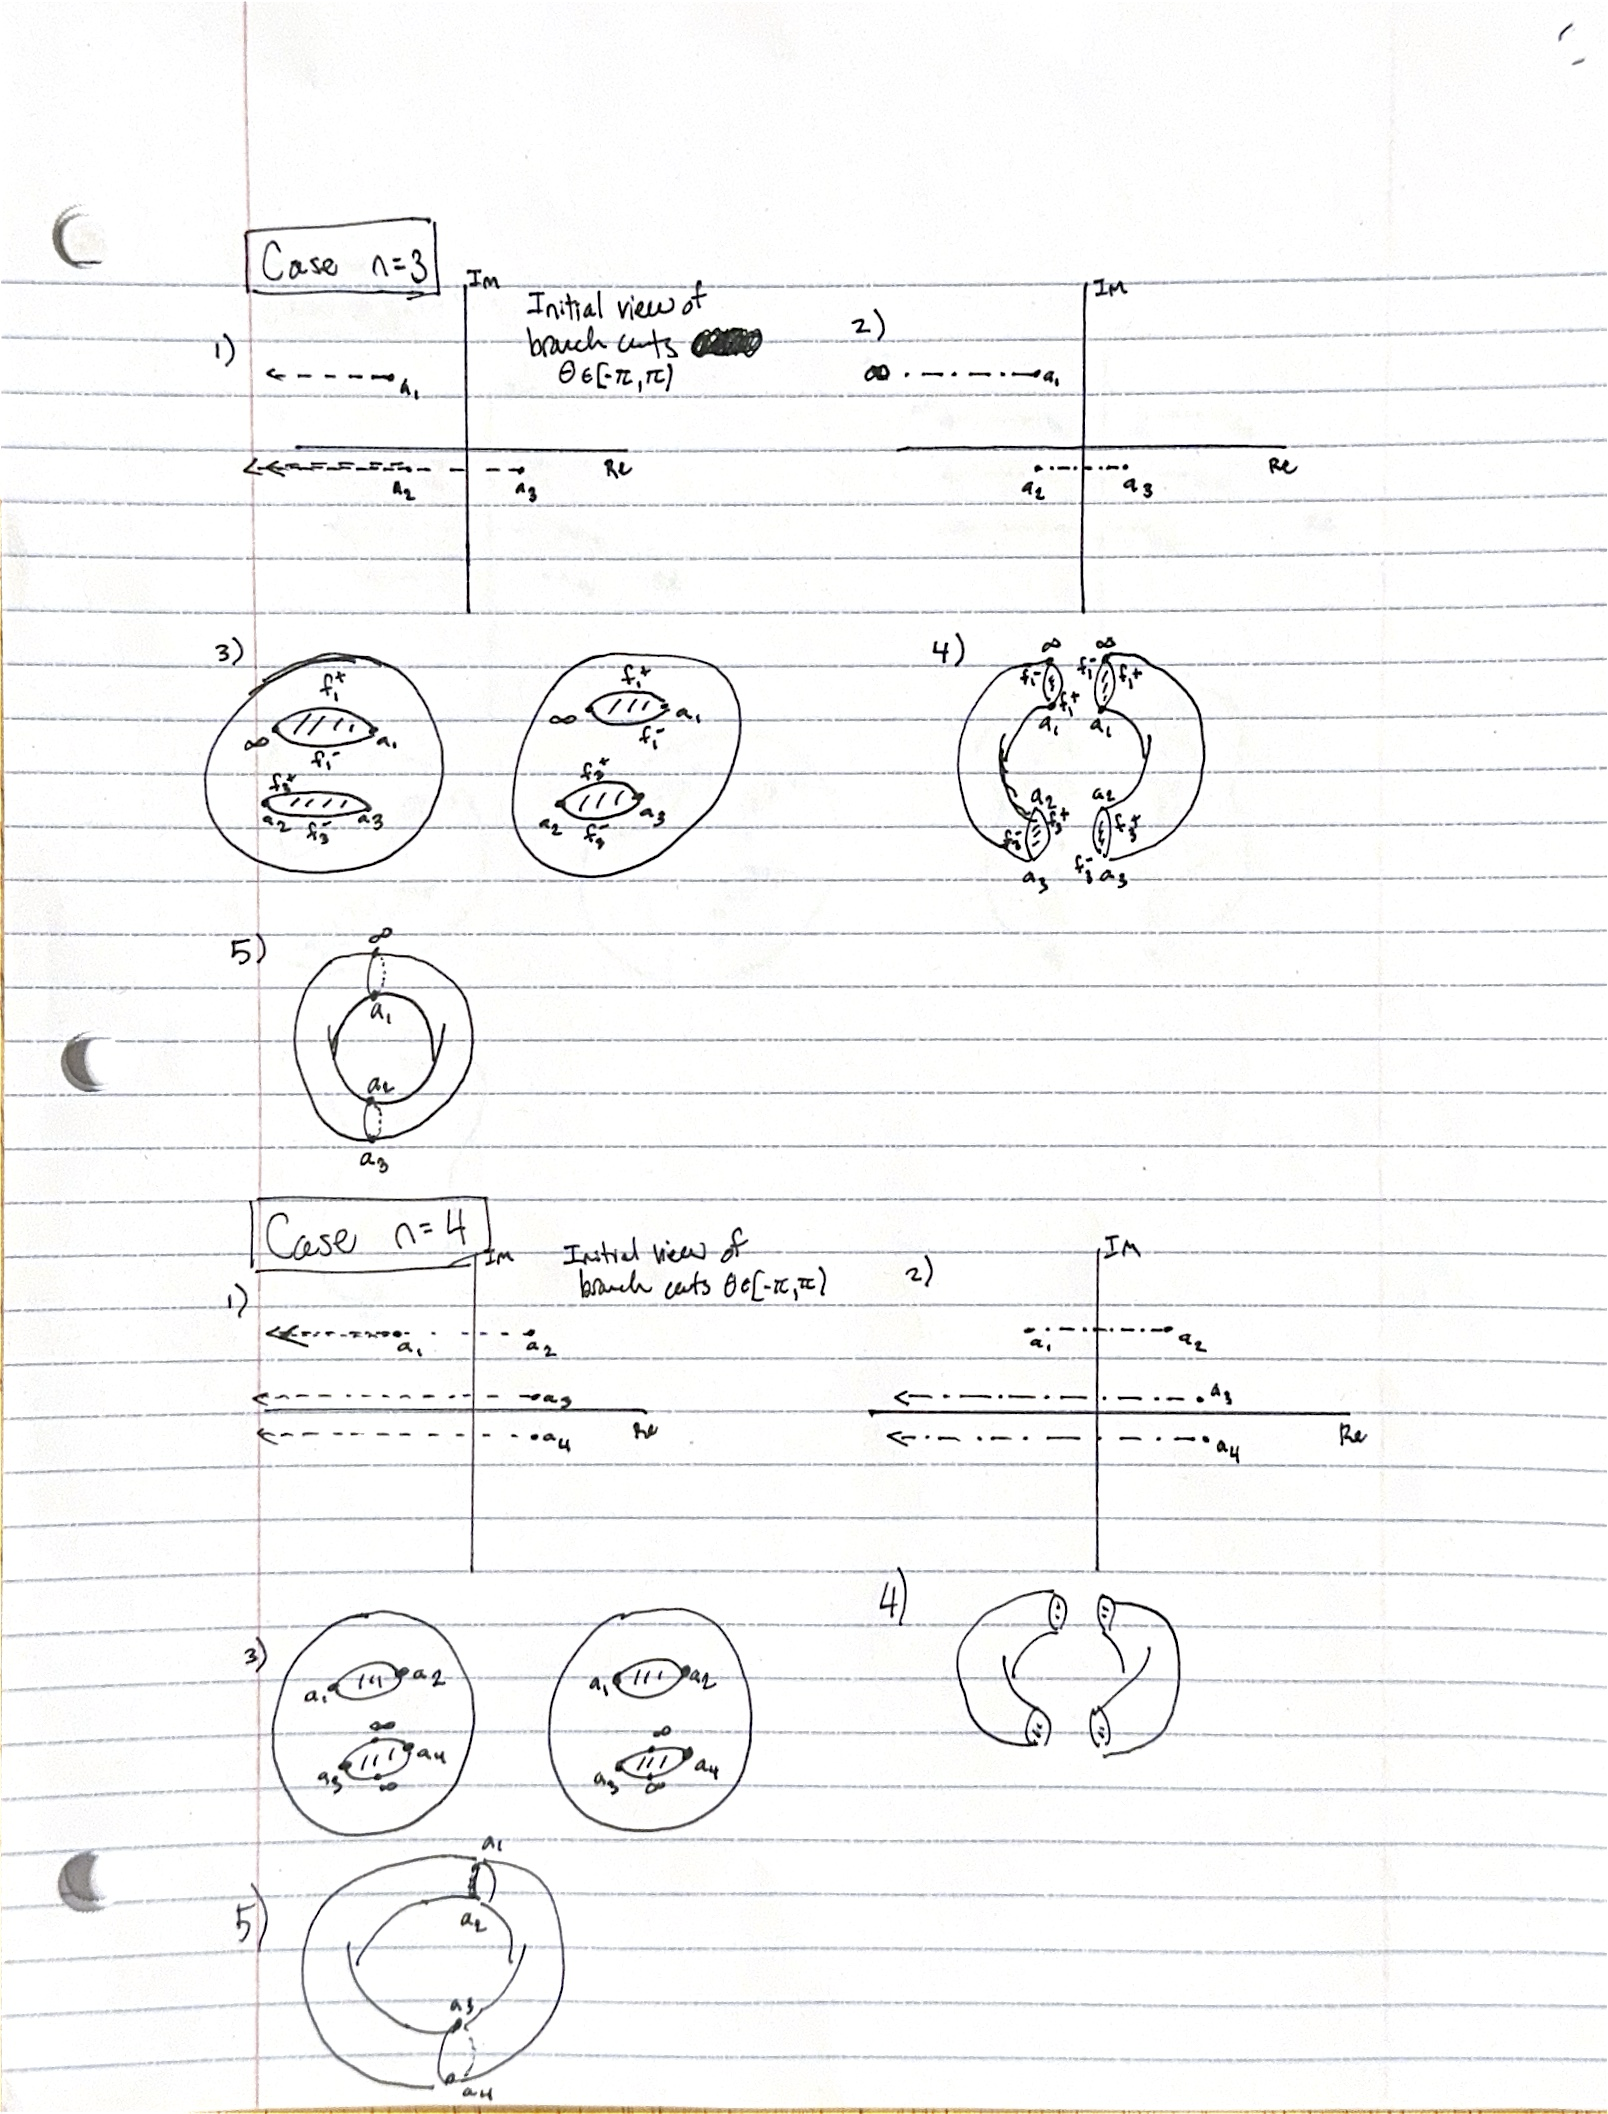 Case n=3
Im
Initial view of
branch cuts
θ∈[-π,π)
1)
a₁
Re
a₂
a₃
2)
Im
∞
a₁
Re
a₂
a₃
3)
f₁⁺
∞
a₁
f₁⁻
f₃⁺
a₂
f₃⁻
a₃
f₁⁺
∞
a₁
f₁⁻
f₃⁺
a₂
f₃⁻
a₃
4)
∞ ∞
f₁⁻ f₁⁺ f₁⁻ f₁⁺
a₁ a₁
a₂ a₂
f₃⁻ f₃⁺ f₃⁺
a₃ f₃⁻ a₃
5)
∞
a₁
a₂
a₃
Case n=4
Im
Initial view of
branch cuts θ∈[-π,π)
1)
a₁
a₂
a₃
Re
a₄
2)
Im
a₁
a₂
a₃
Re
a₄
3)
a₁
a₂
∞
a₃
a₄
∞
a₁
a₂
∞
a₃
a₄
∞
4)
5)
a₁
a₂
a₃
a₄